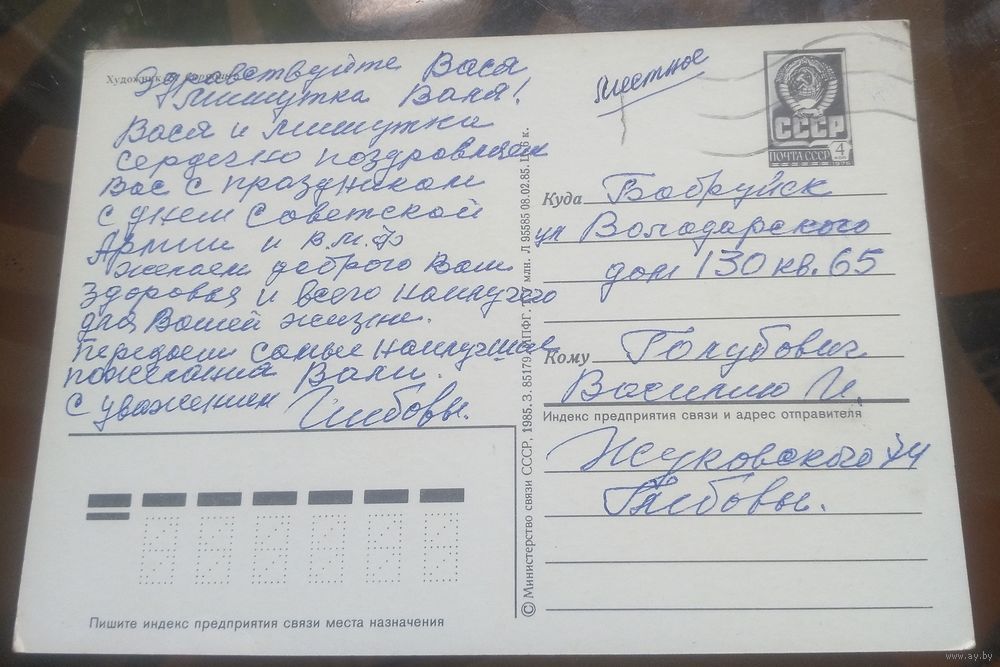 Художник
Здравствуйте Вася
Мишутка Валя!
Вася и Мишутка
сердечно поздравляем
Вас с праздником
с днем Советской
Армии и в.м.ф
желаем доброго Вам
здоровья и всего наилучего
для Вашей жизни.
Передаем самые наилучшие
пожелания Вали.
с уважением Глибовы.
Пишите индекс предприятия связи места назначения
© Министерство связи СССР, 1985. З. 85179 ППФГ. млн. Л 95585 08.02.85. Ц. 6 к.
местное
СССР
ПОЧТА СССР 4 коп
Куда Бобруйск
ул Володарского
дом 130 кв. 65
Кому Голубович
Василию И.
Индекс предприятия связи и адрес отправителя
Жуковского 74
Глибовы.
www.ay.by